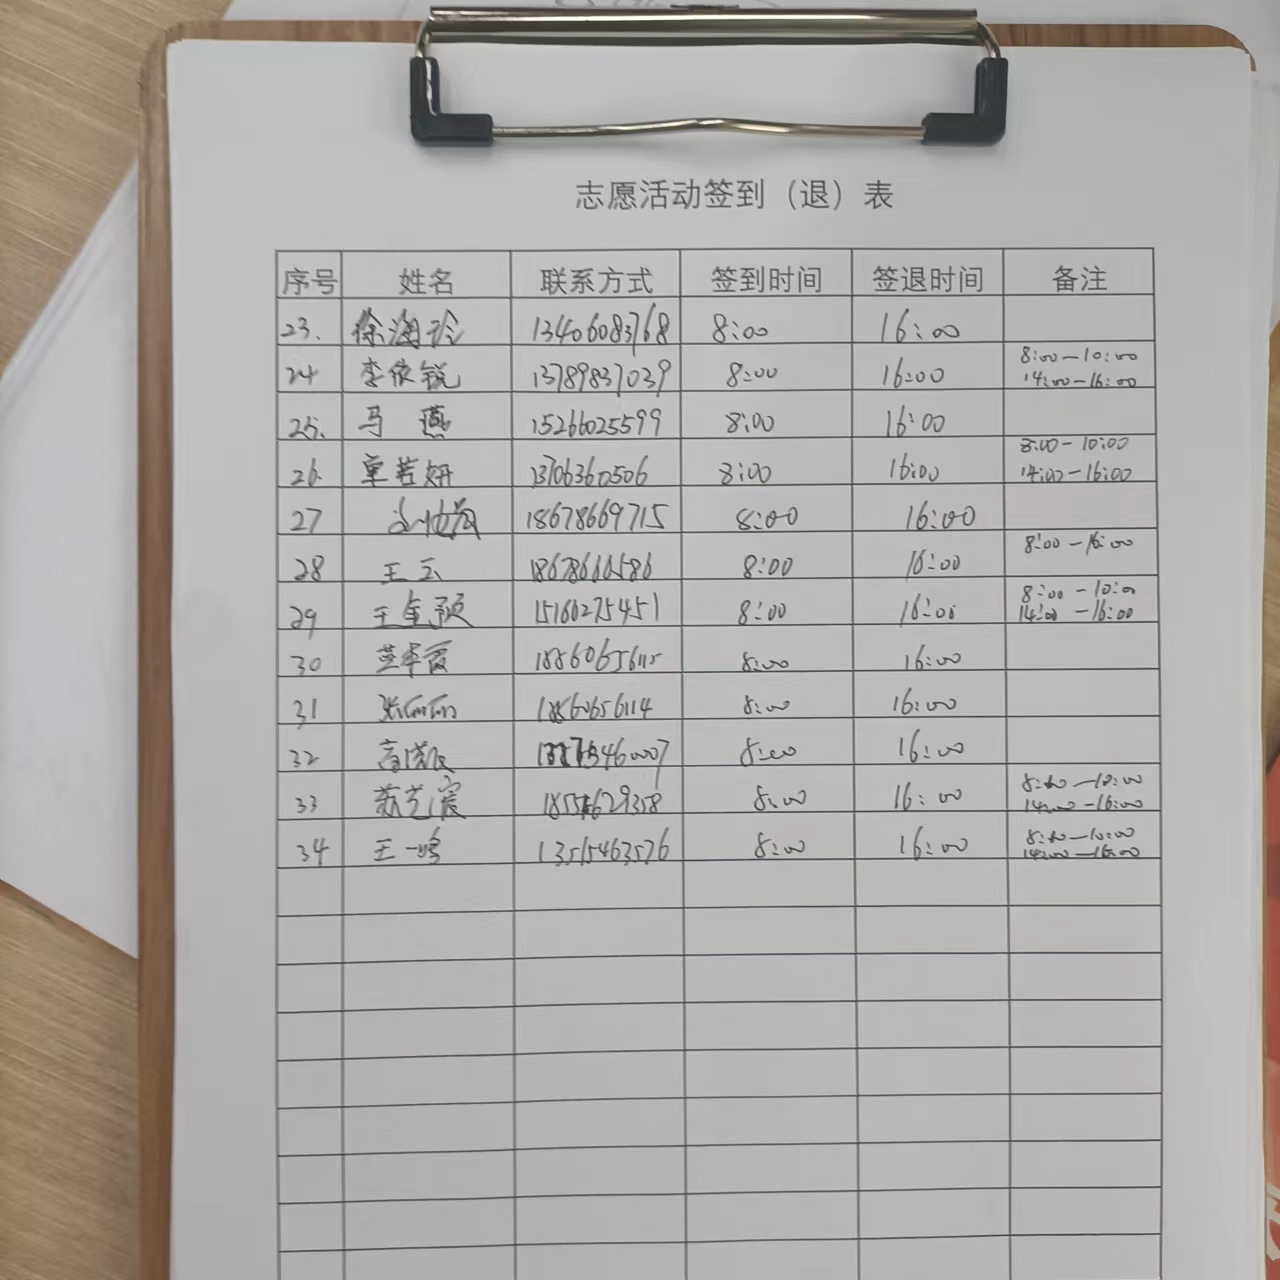 志愿活动签到（退）表
序号 姓名 联系方式 签到时间 签退时间 备注
23. 徐海玲 13406083768 8:00 16:00
24. 李依锐 13789837039 8:00 16:00 8:00—10:00 14:00—16:00
25. 马 燕 15266025599 8:00 16:00
26. 単若妍 13706360506 8:00 16:00 8:00-10:00 14:00-16:00
27 18678669715 8:00 16:00
28 王云 18678660586 8:00 16:00 8:00-16:00
29 王 15160275451 8:00 16:00 8:00-10:00 14:00-16:00
30 18860656115 8:00 16:00
31 张丽丽 18860656114 8:00 16:00
32 8:00 16:00
33 苏艺宸 8:00 16:00 8:00—10:00 14:00-16:00
34 王一鸣 13515463576 8:00 16:00 8:00—10:00 14:00—16:00